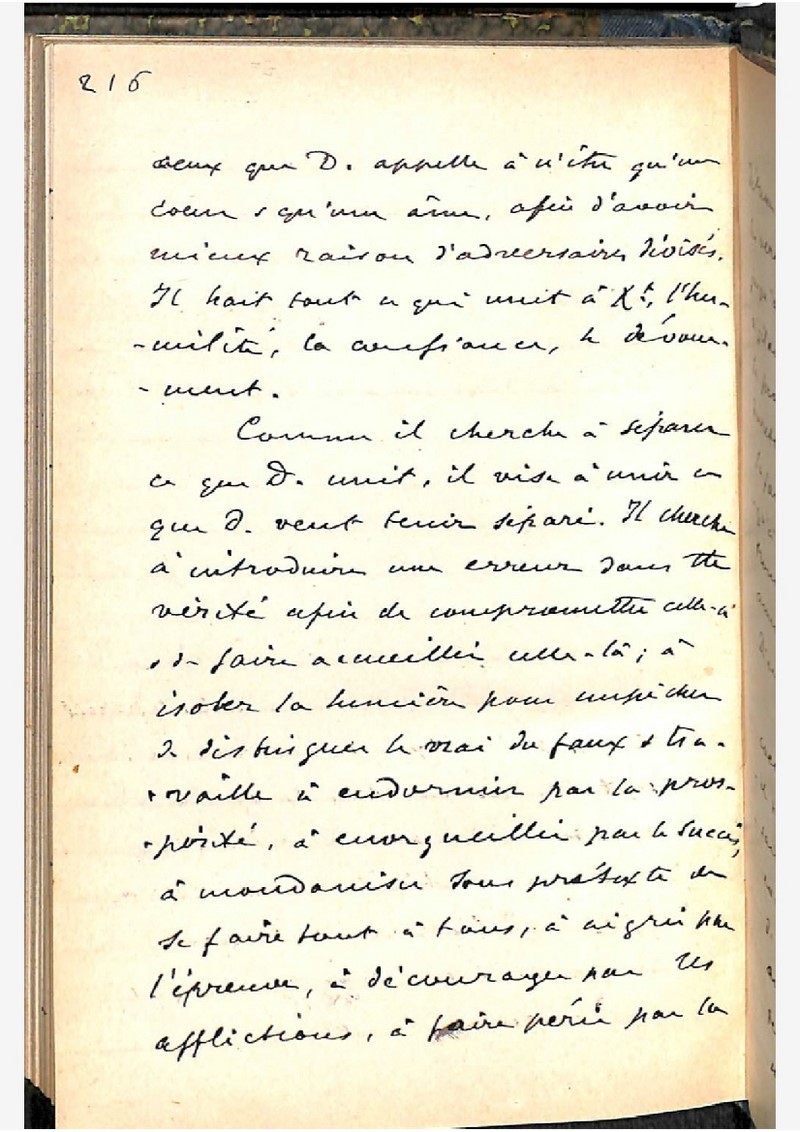 216
ceux que D. appelle à n'être qu'un
coeur & qu'une âme, afin d'avoir
mieux raison d'adversaires divisés.
Il hait tout ce qui unit à Xt, l'hu-
-milité, la confiance, le dévoue-
-ment.
Comme il cherche à séparer
ce que D. unit, il vise à unir ce
que D. veut tenir séparé. Il cherche
à introduire une erreur dans tte
vérité afin de compromettre celle-ci
& de faire accueillir celle-là ; à
isoler la lumière pour empêcher
de distinguer le vrai du faux & tra-
-vaille à endormir par la pros-
-périté, à enorgueillir par le succès,
à mondaniser sous prétexte de
se faire tout à tous, à aigrir par
l'épreuve, à décourager par les
afflictions, à faire périr par la